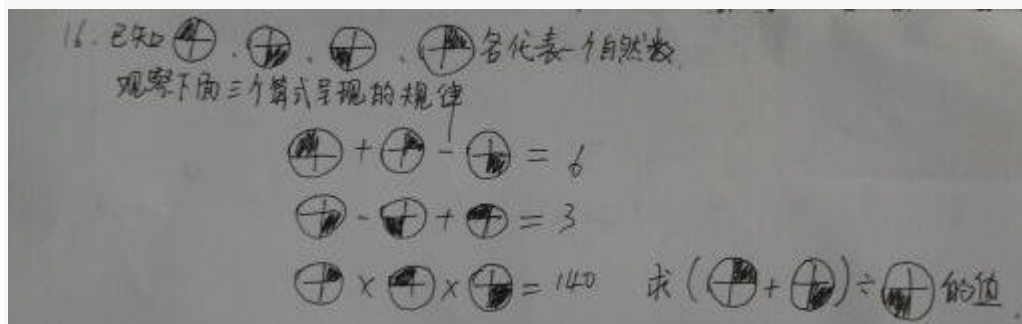 16. 已知◴、◶、◵、◷各代表一个自然数
观察下面三个算式呈现的规律
◴+◷-◶=6
◶-◵+◴=3
◷×◴×◶=140 求(◷+◶)÷◵的值.